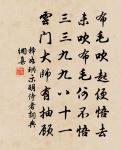 布毛吹起便悟去
未吹布毛何不悟
三三九九八十一
雲門大師有抽顧
釋如珙示明侍者詞典
網集